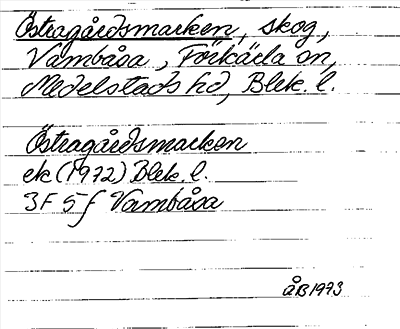 Östragårdsmarken, skog,
Vambåsa, Förkärla sn,
Medelstads hd, Blek. l.
Östragårdsmarken
ek (1972) Blek. l.
3F 5f Vambåsa
ÅB 1973